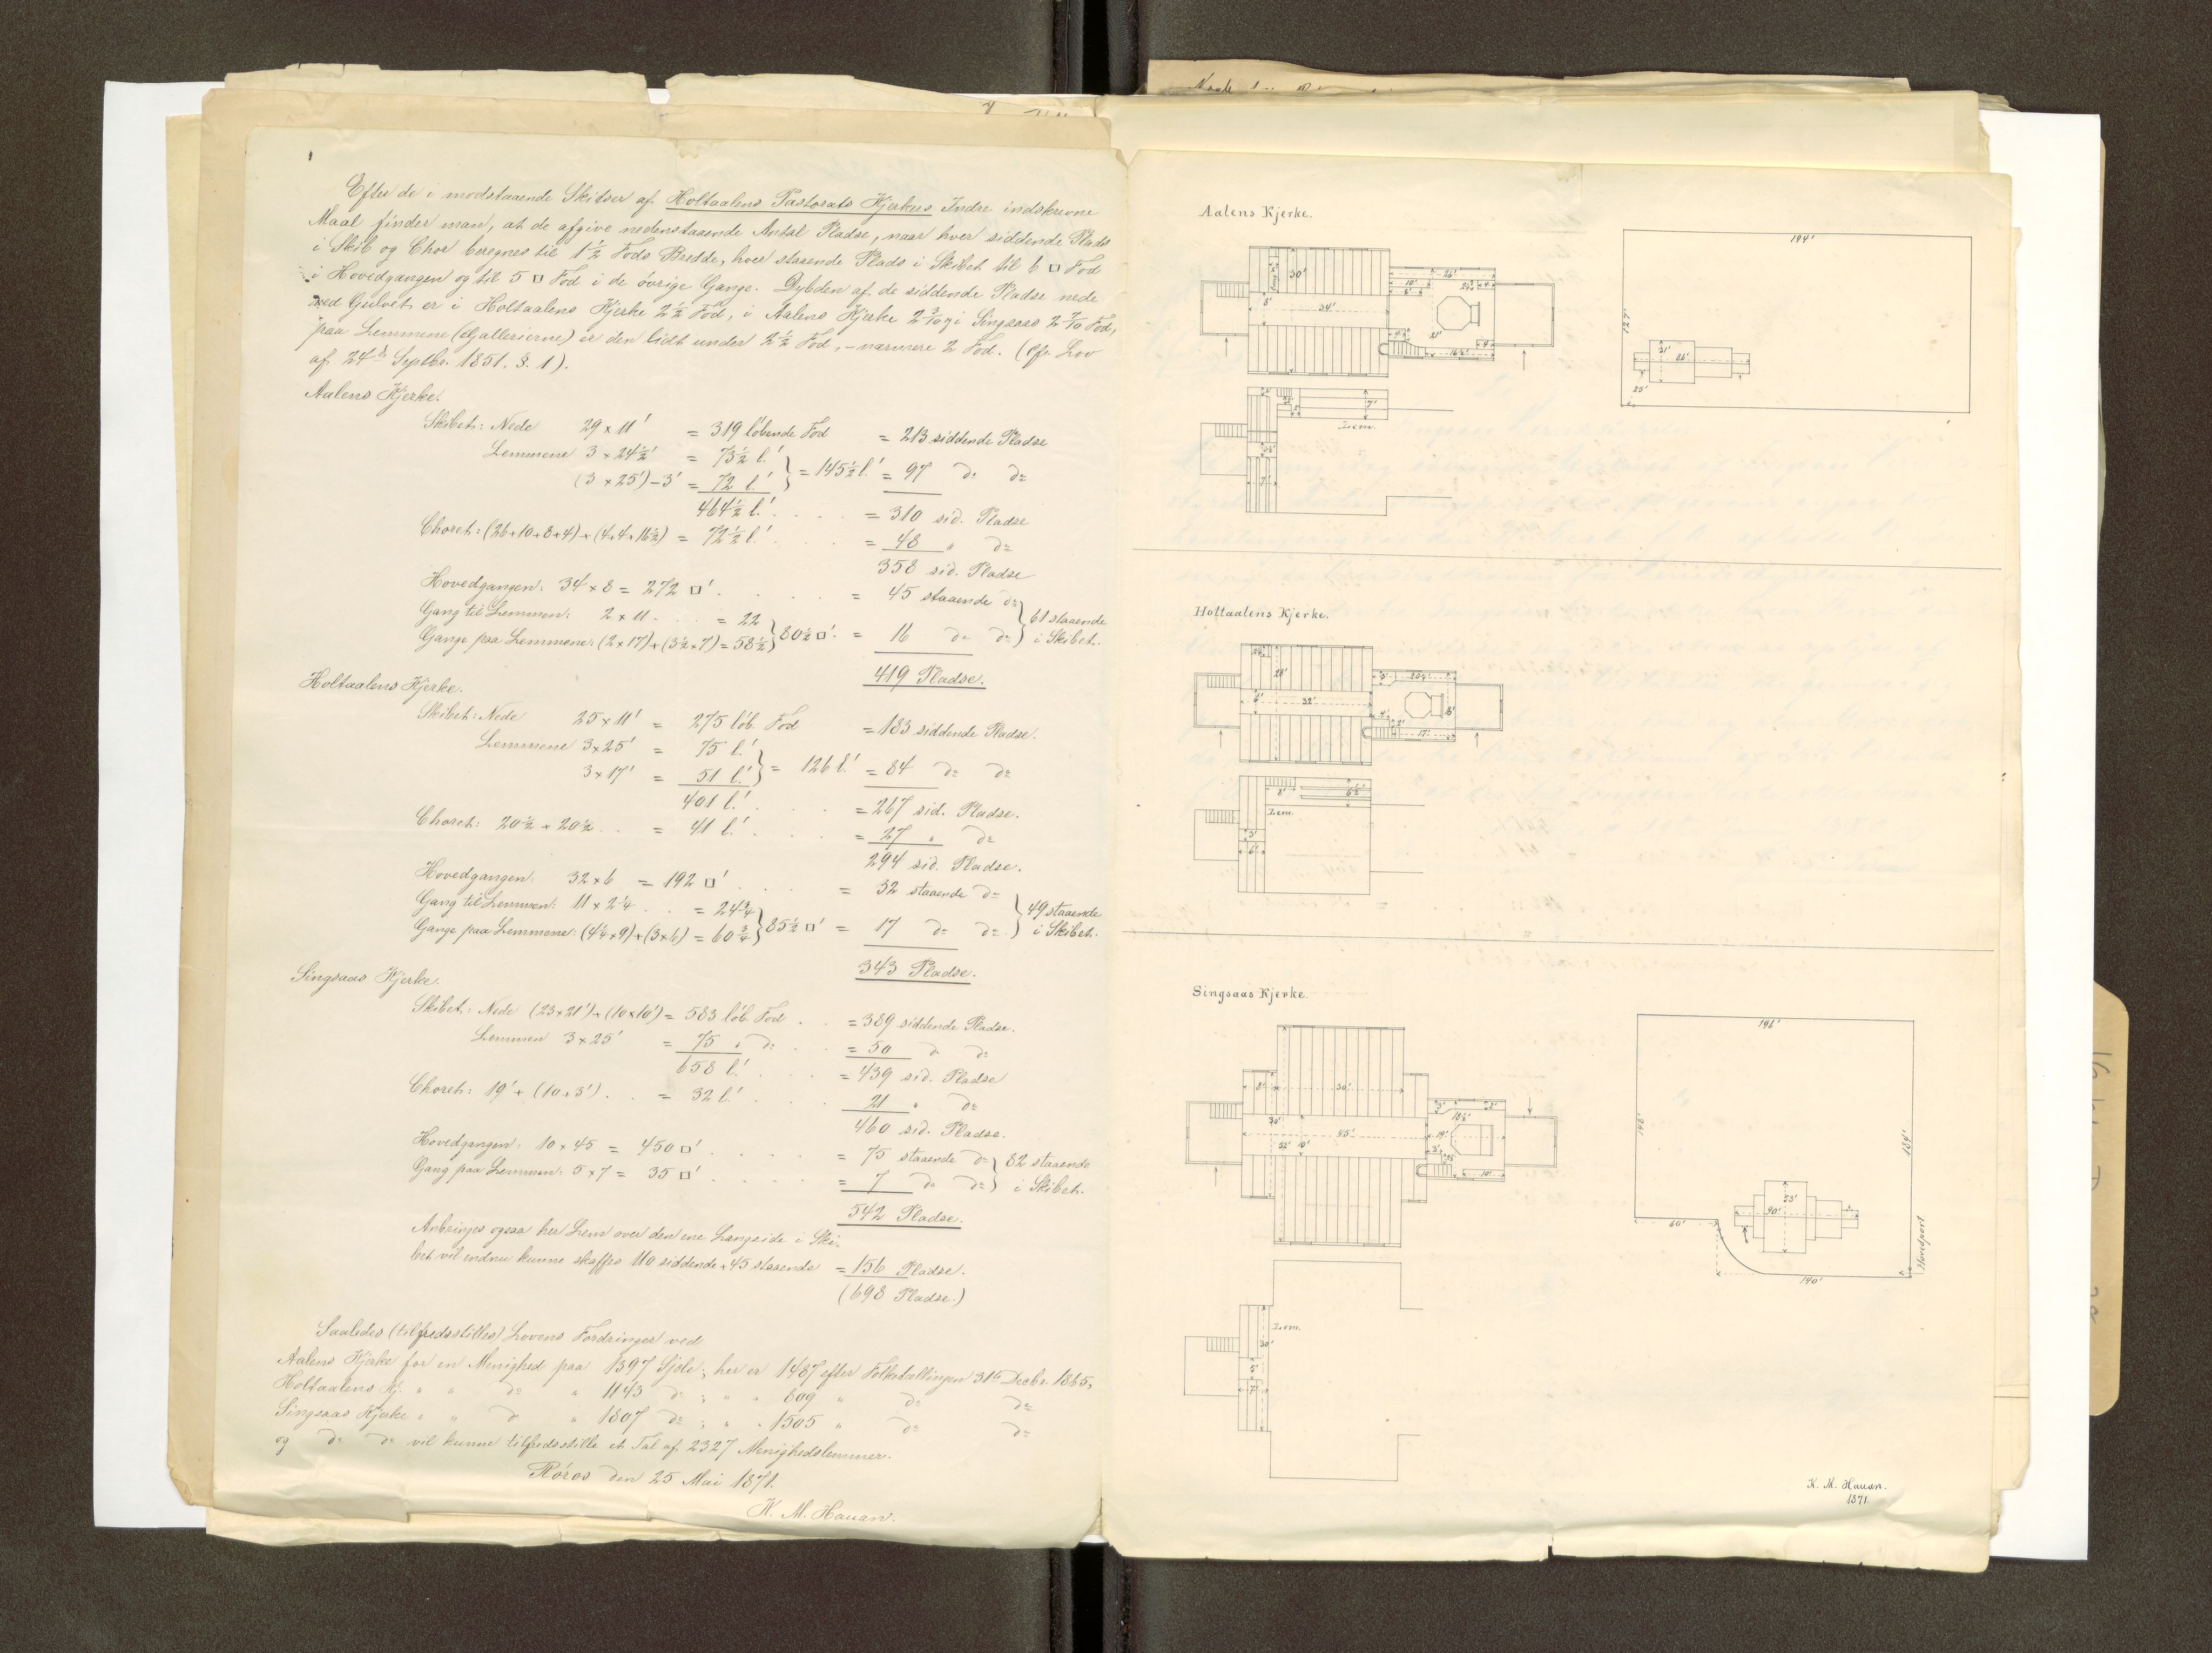 Efter de i modstaaende Skitser af Holtaalens Pastorats Kjerkers Indre indskrevne
Maal finder man, at de afgive nedenstaaende Antal Pladse, naar hver siddende Plads
i Skib og Chor beregnes til 1 1/2 Fods Bredde, hver staaende Plads i Skibet til 6 □ Fod
i Hovedgangen og til 5 □ Fod i de övrige Gange. Dybden af de siddende Pladse nede
ved Gulvet er i Holtaalens Kjerke 2 1/2 Fod, i Aalens Kjerke 2 3/10 og i Singsaas 2 7/10 Fod,
paa Lemmene (Gallerierne) er den lidt under 2 1/2 Fod, - nærmere 2 Fod. (cfr. Lov
af 24de Septbr. 1851. §. 1).
Aalens Kjerke.
Skibet: Nede 29 × 11' = 319 löbende Fod = 213 siddende Pladse
Lemmene 3 × 24 1/2' = 73 1/2 l.'
(3 × 25') - 3' = 72 l.' } = 145 1/2 l.' = 97 do do
464 1/2 l.' . . . . = 310 sid. Pladse
Choret: (26+10+8+4) + (4+4+16 1/2) = 72 1/2 l.' . . . = 48 " do
358 sid. Pladse
Hovedgangen: 34 × 8 = 272 □' . . . . = 45 staaende do
Gang til Lemmen: 2 × 11 . . . = 22
Gange paa Lemmene: (2 × 17) + (3 1/2 × 7) = 58 1/2 } 80 1/2 □'. = 16 do do } 61 staaende i Skibet.
419 Pladse.
Holtaalens Kjerke.
Skibet: Nede 25 × 11' = 275 löb. Fod = 183 siddende Pladse.
Lemmene 3 × 25' = 75 l.'
3 × 17' = 51 l.' } = 126 l.' = 84 do do
401 l.' . . . = 267 sid. Pladse.
Choret: 20 1/2 + 20 1/2 . . = 41 l.' . . . = 27 " do
294 sid. Pladse.
Hovedgangen: 32 × 6 = 192 □' . . . = 32 staaende do
Gang til Lemmen: 11 × 2 1/4 . . = 24 3/4
Gange paa Lemmene: (4 1/4 × 9) + (3 × 6) = 60 3/4 } 85 1/2 □' = 17 do do } 49 staaende i Skibet.
343 Pladse.
Singsaas Kjerke.
Skibet: Nede (23 × 21') + (10 × 10') = 583 löb. Fod . . = 389 siddende Pladse.
Lemmen 3 × 25' = 75 " do . . = 50 do do
658 l.' . . . = 439 sid. Pladse
Choret: 19' + (10 + 3') . . = 32 l.' . . . 21 " do
460 sid. Pladse.
Hovedgangen: 10 × 45 = 450 □' . . . . = 75 staaende do
Gang paa Lemmen: 5 × 7 = 35 □' . . . . = 7 do do } 82 staaende i Skibet.
542 Pladse.
Anbringes ogsaa her Lem over den ene Langside i Ski-
bet vil endnu kunne skaffes 110 siddende + 45 staaende = 156 Pladse.
(698 Pladse.)
Saaledes (tilfredsstilles) Lovens Fordringer ved
Aalens Kjerke for en Menighed paa 1397 Sjöle; her er 1487 efter Folketællingen 31te Decbr. 1865,
Holtaalens Kj. " " do " 1143 do ; " " 809 " do do
Singsaas Kjerke " " do " 1807 do ; " " 1505 " do do
og do do vil kunne tilfredsstille et Tal af 2327 Menighedslemmer.
Röros den 25 Mai 1871.
K. M. Hauan.
Aalens Kjerke.
30'
8'
34'
26'
10'
8'
4'
21'
4'
16 1/2'
4'
7'
Lem.
7'
194'
127'
31'
86'
25'
Holtaalens Kjerke.
28'
6'
32'
3'
20 1/2'
18'
4'
2'
17'
8'
6 1/2'
Lem.
3'
6'
Singsaas Kjerke.
8'
30'
30'
45'
52'
10'
3'
3'
18 1/2'
19'
3'
10'
Lem.
30'
5'
7'
196'
148'
184'
53'
90'
60'
140'
Hovedport
K. M. Hauan.
1871.